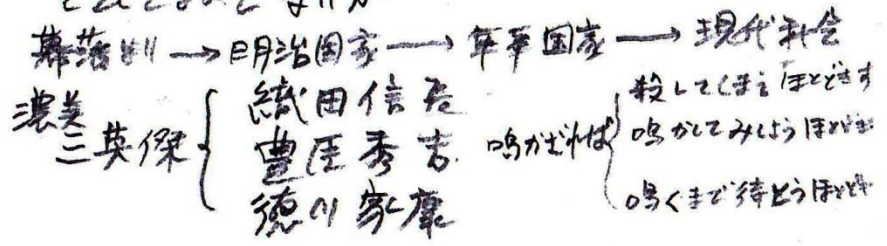 幕藩制→明治国家→軍事国家→現代社会
濃美三英傑
織田信長
豊臣秀吉
徳川家康
鳴かざれば
殺してしまえほととぎす
鳴かしてみしょうほととぎす
鳴くまで待とうほととぎす